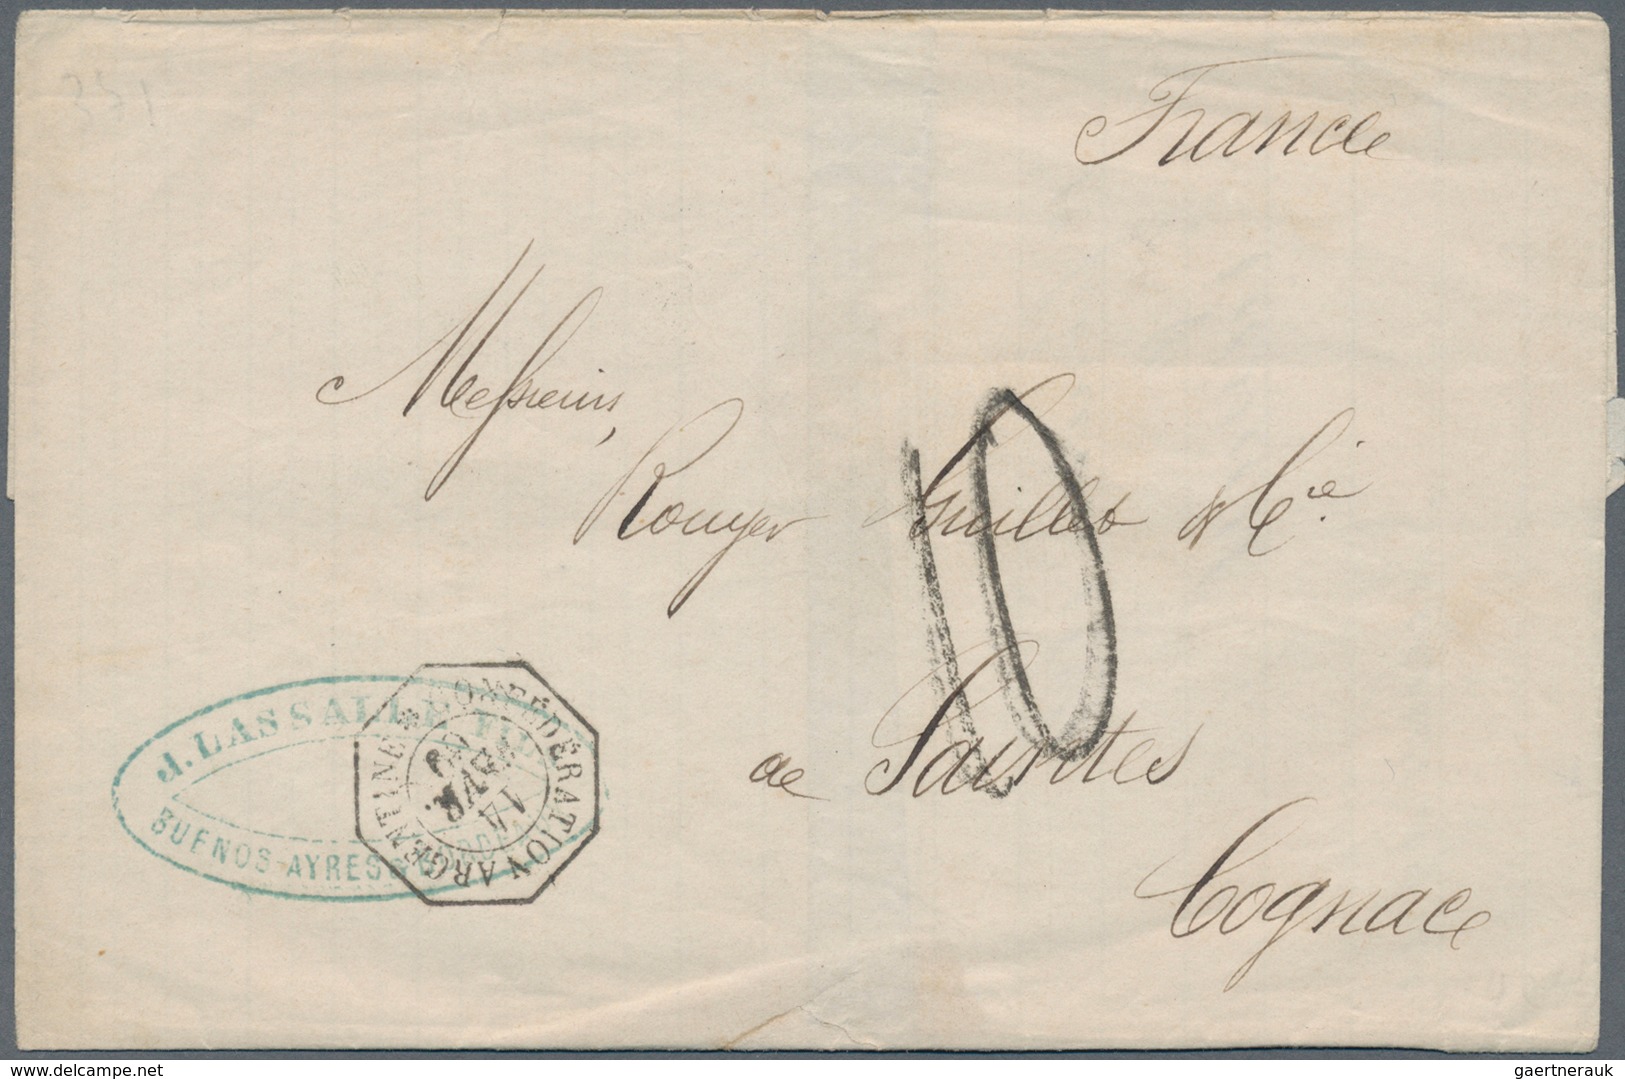 351
France
Messieurs,
Rouyer Guillet & Cie.
10
de Saintes
Cognac
J. LASSALLE FILS
BUENOS-AYRES & BORDEAUX
CONFÉDÉRATION ARGENTINE *
14
AVR.
69
delcampe.net
gaertnerauk